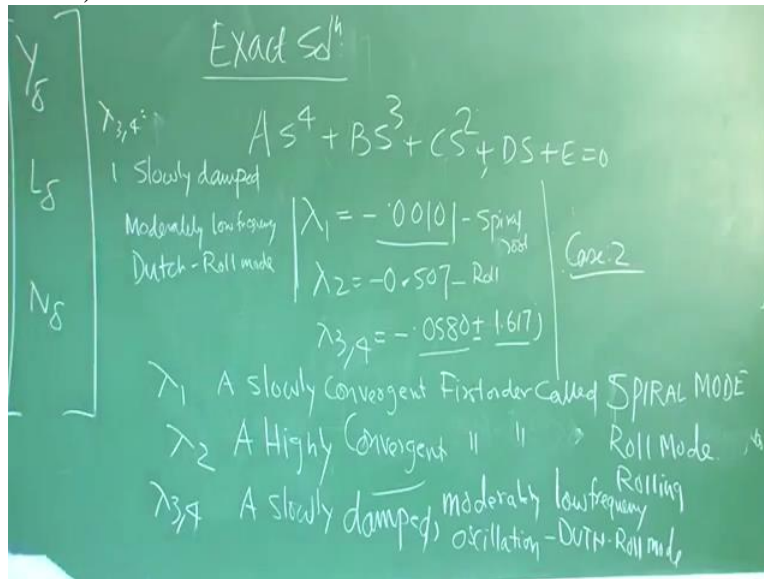 Exact Solⁿ
Yδ
Lδ
Nδ
λ3,4 =
1 Slowly damped
Moderately low frequency
Dutch-Roll mode
AS⁴ + BS³ + CS² + DS + E = 0
λ1 = - .00101 - Spiral root
λ2 = -0.507 - Roll
λ3,4 = - .0580 ± 1.617j
Case: 2
λ1 A slowly Convergent First order Called SPIRAL MODE
λ2 A Highly Convergent " " " Roll Mode
Rolling
λ3,4 A slowly damped, moderately low frequency
oscillation - DUTH-Roll mode